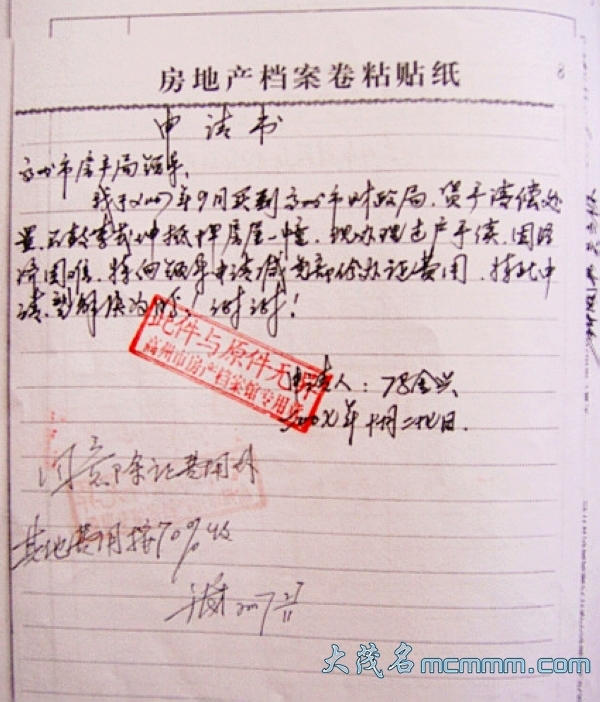 8
房地产档案卷粘贴纸
申请书
高州市房产局领导:
我于2007年9月买到高州市财政局,资产清偿处
置石鼓李武坤抵押房屋一幢,现办理过户手续,因经
济困难,特向领导申请减免部份办证费用,特此申
请,望解决为盼!谢谢!
此件与原件无异
高州市房产档案馆专用章
申请人:
2007年十月二九日.
同意除证费用外
其他费用按70%收
2007 27/11
大茂名mcmmm.com